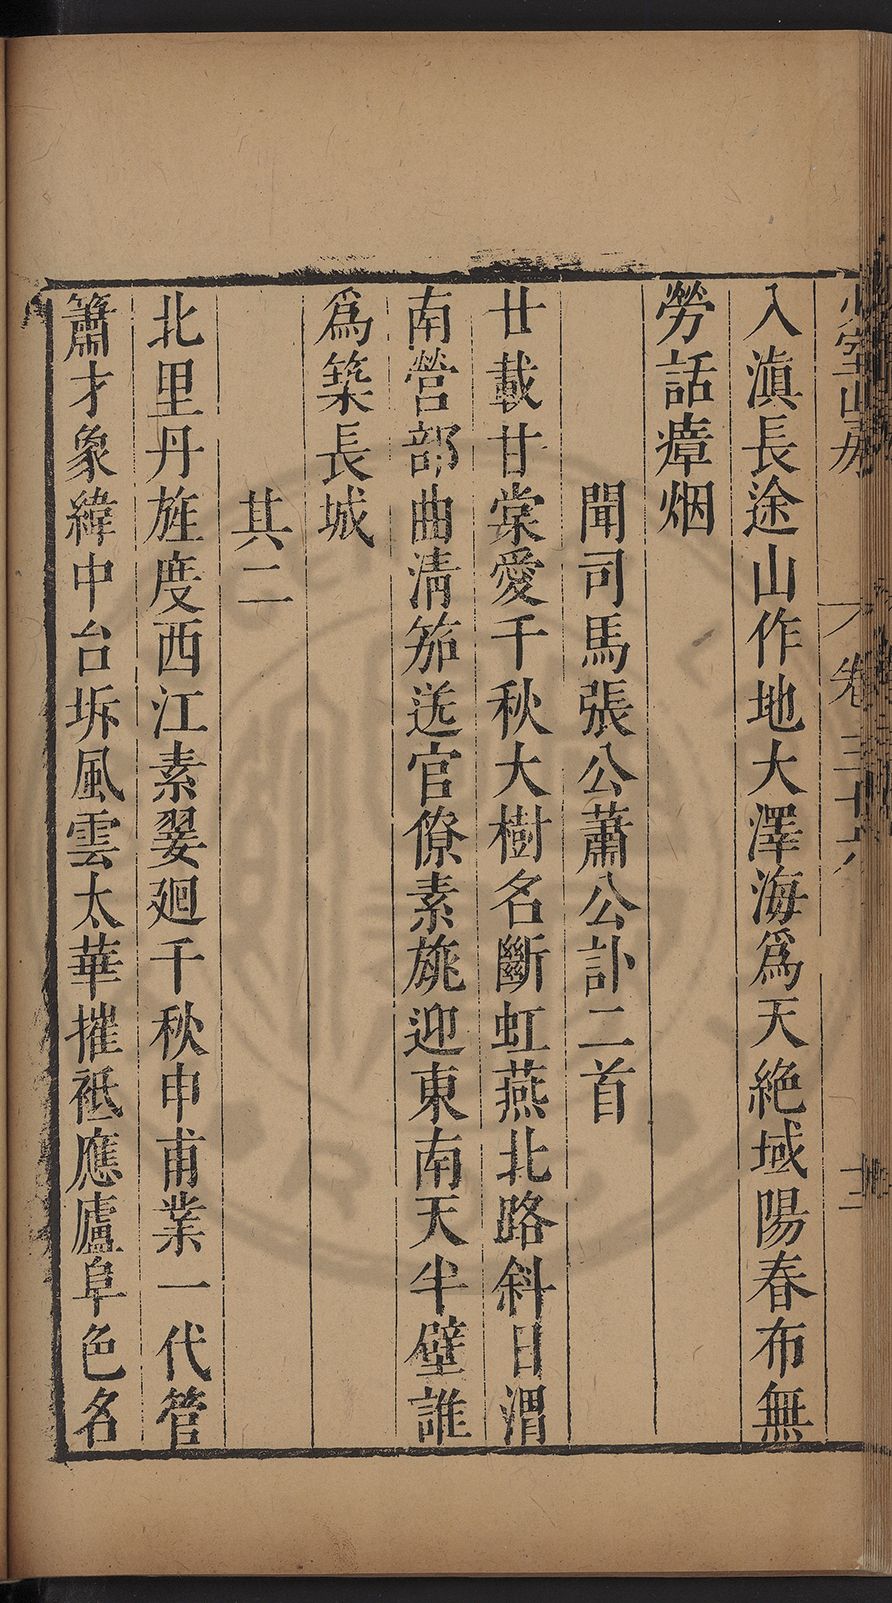 少室山房
卷三十六
十三
入滇長途山作地大澤海爲天絶域陽春布無
勞話瘴烟
聞司馬張公蕭公訃二首
廿載甘棠愛千秋大樹名斷虹燕北路斜日渭
南營部曲清笳送官僚素旐迎東南天半壁誰
爲築長城
其二
北里丹旌度西江素翣廻千秋申甫業一代管
簫才象緯中台坼風雲太華摧祗應廬阜色名